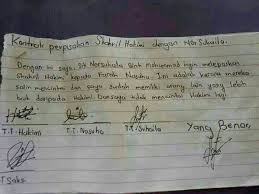 Kontrak perpisahan Shahril Hakimi dengan Nor Suhaila.
Dengan ini saya, Siti Norsuhaila Binti Mohammad ingin melepaskan
Shahril Hakimi kepada Farah Nasuha. Ini adalah kerana mereka
saling mencintai dan saya sudah memiliki orang lain yang lebih
baik daripada Hakimi. Dan saya tidak mencintai Hakimi lagi.
Yang Benar,
T.T. Hakimi T.T. Nasuha T.T. Suhaila
T.T Saksi